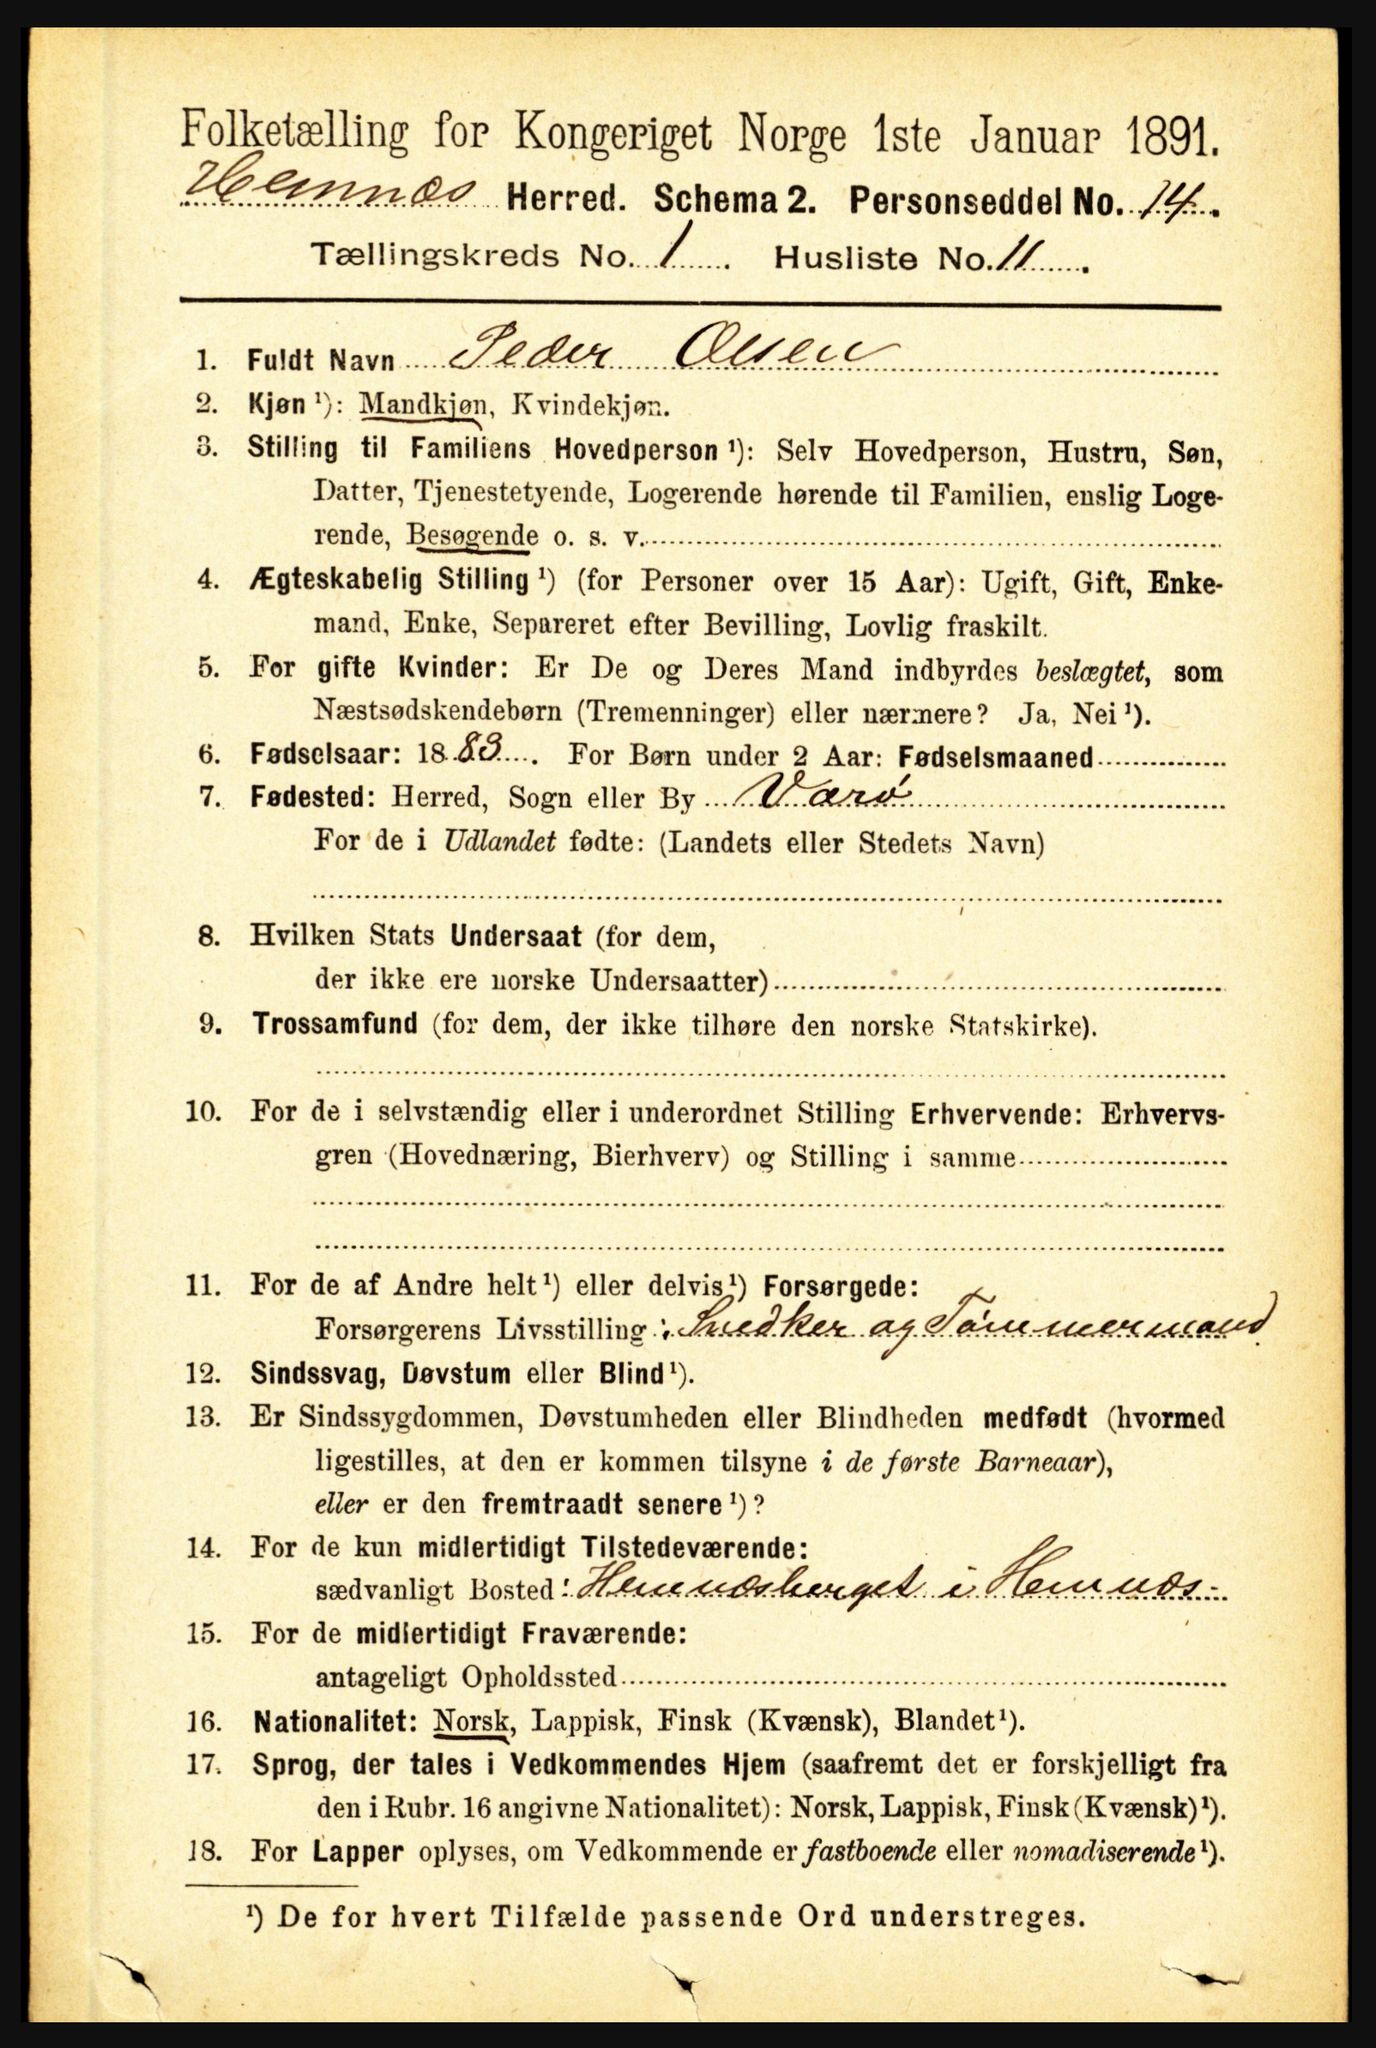 Folketælling for Kongeriget Norge 1ste Januar 1891.
Hemnæs Herred. Schema 2. Personseddel No. 14.
Tællingskreds No. 1. Husliste No. 11.
1. Fuldt Navn Peder Olsen
2. Kjøn ¹): Mandkjøn, Kvindekjøn.
3. Stilling til Familiens Hovedperson ¹): Selv Hovedperson, Hustru, Søn,
Datter, Tjenestetyende, Logerende hørende til Familien, enslig Loge-
rende, Besøgende o. s. v.
4. Ægteskabelig Stilling ¹) (for Personer over 15 Aar): Ugift, Gift, Enke-
mand, Enke, Separeret efter Bevilling, Lovlig fraskilt.
5. For gifte Kvinder: Er De og Deres Mand indbyrdes beslægtet, som
Næstsødskendebørn (Tremenninger) eller nærmere? Ja, Nei ¹).
6. Fødselsaar: 1883. For Børn under 2 Aar: Fødselsmaaned
7. Fødested: Herred, Sogn eller By Værø
For de i Udlandet fødte: (Landets eller Stedets Navn)
8. Hvilken Stats Undersaat (for dem,
der ikke ere norske Undersaatter)
9. Trossamfund (for dem, der ikke tilhøre den norske Statskirke).
10. For de i selvstændig eller i underordnet Stilling Erhvervende: Erhvervs-
gren (Hovednæring, Bierhverv) og Stilling i samme
11. For de af Andre helt ¹) eller delvis ¹) Forsørgede:
Forsørgerens Livsstilling: Snedker og Tømmermand
12. Sindssvag, Døvstum eller Blind ¹).
13. Er Sindssygdommen, Døvstumheden eller Blindheden medfødt (hvormed
ligestilles, at den er kommen tilsyne i de første Barneaar),
eller er den fremtraadt senere ¹)?
14. For de kun midlertidigt Tilstedeværende:
sædvanligt Bosted: Hemnæsberget i Hemnæs
15. For de midlertidigt Fraværende:
antageligt Opholdssted
16. Nationalitet: Norsk, Lappisk, Finsk (Kvænsk), Blandet ¹).
17. Sprog, der tales i Vedkommendes Hjem (saafremt det er forskjelligt fra
den i Rubr. 16 angivne Nationalitet): Norsk, Lappisk, Finsk (Kvænsk) ¹).
18. For Lapper oplyses, om Vedkommende er fastboende eller nomadiserende ¹).
¹) De for hvert Tilfælde passende Ord understreges.